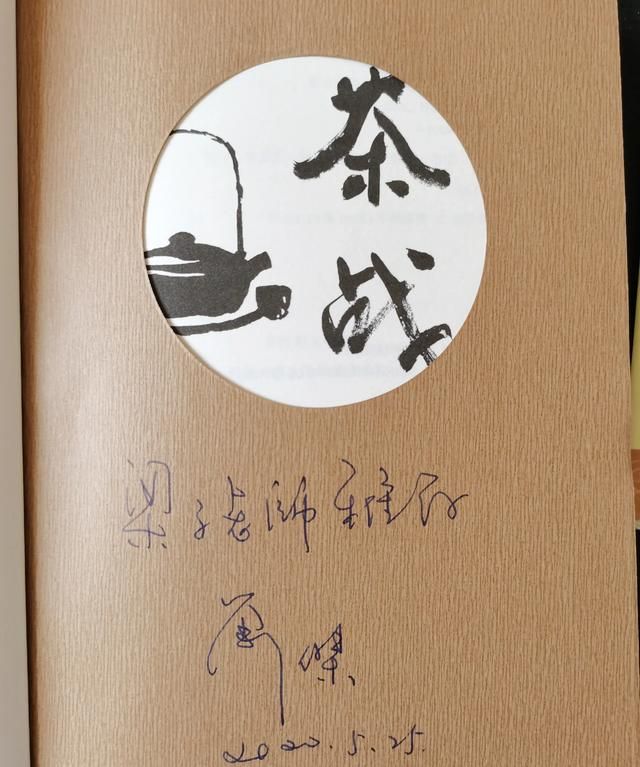 茶战
梁子老师雅正
杰
2020.5.25.